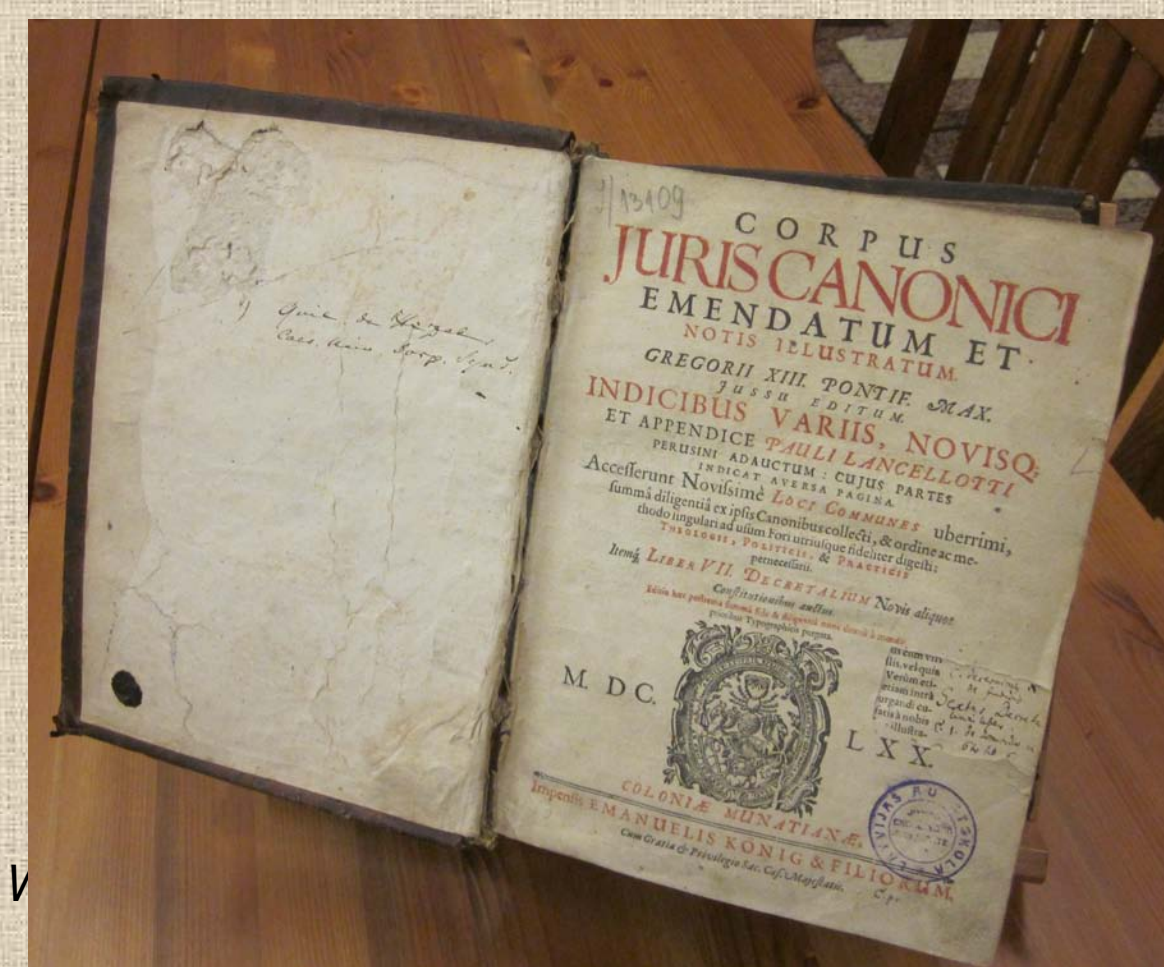 9/13109
CORPUS
JURIS CANONICI
EMENDATUM ET
NOTIS ILLUSTRATUM.
GREGORII XIII. PONTIF. MAX.
JUSSU EDITUM.
INDICIBUS VARIIS, NOVISQ;
ET APPENDICE PAULI LANCELLOTTI
PERUSINI ADAUCTUM: CUJUS PARTES
INDICAT AVERSA PAGINA.
Accesserunt Novissimè LOCI COMMUNES uberrimi,
summâ diligentiâ ex ipsis Canonibus collecti, & ordine ac me-
thodo singulari ad usum Fori utriusque fideliter digesti:
THEOLOGIS, POLITICIS, & PRACTICIS
pernecessarii.
Itemq́, LIBER VII. DECRETALIUM Novis aliquot
Constitutionibus auctus.
M. DC.
LXX.
COLONIÆ MUNATIANÆ,
Impensis EMANUELIS KÖNIG & FILIORUM,
Cum Gratia & Privilegio Sac. Cæs. Majestatis.